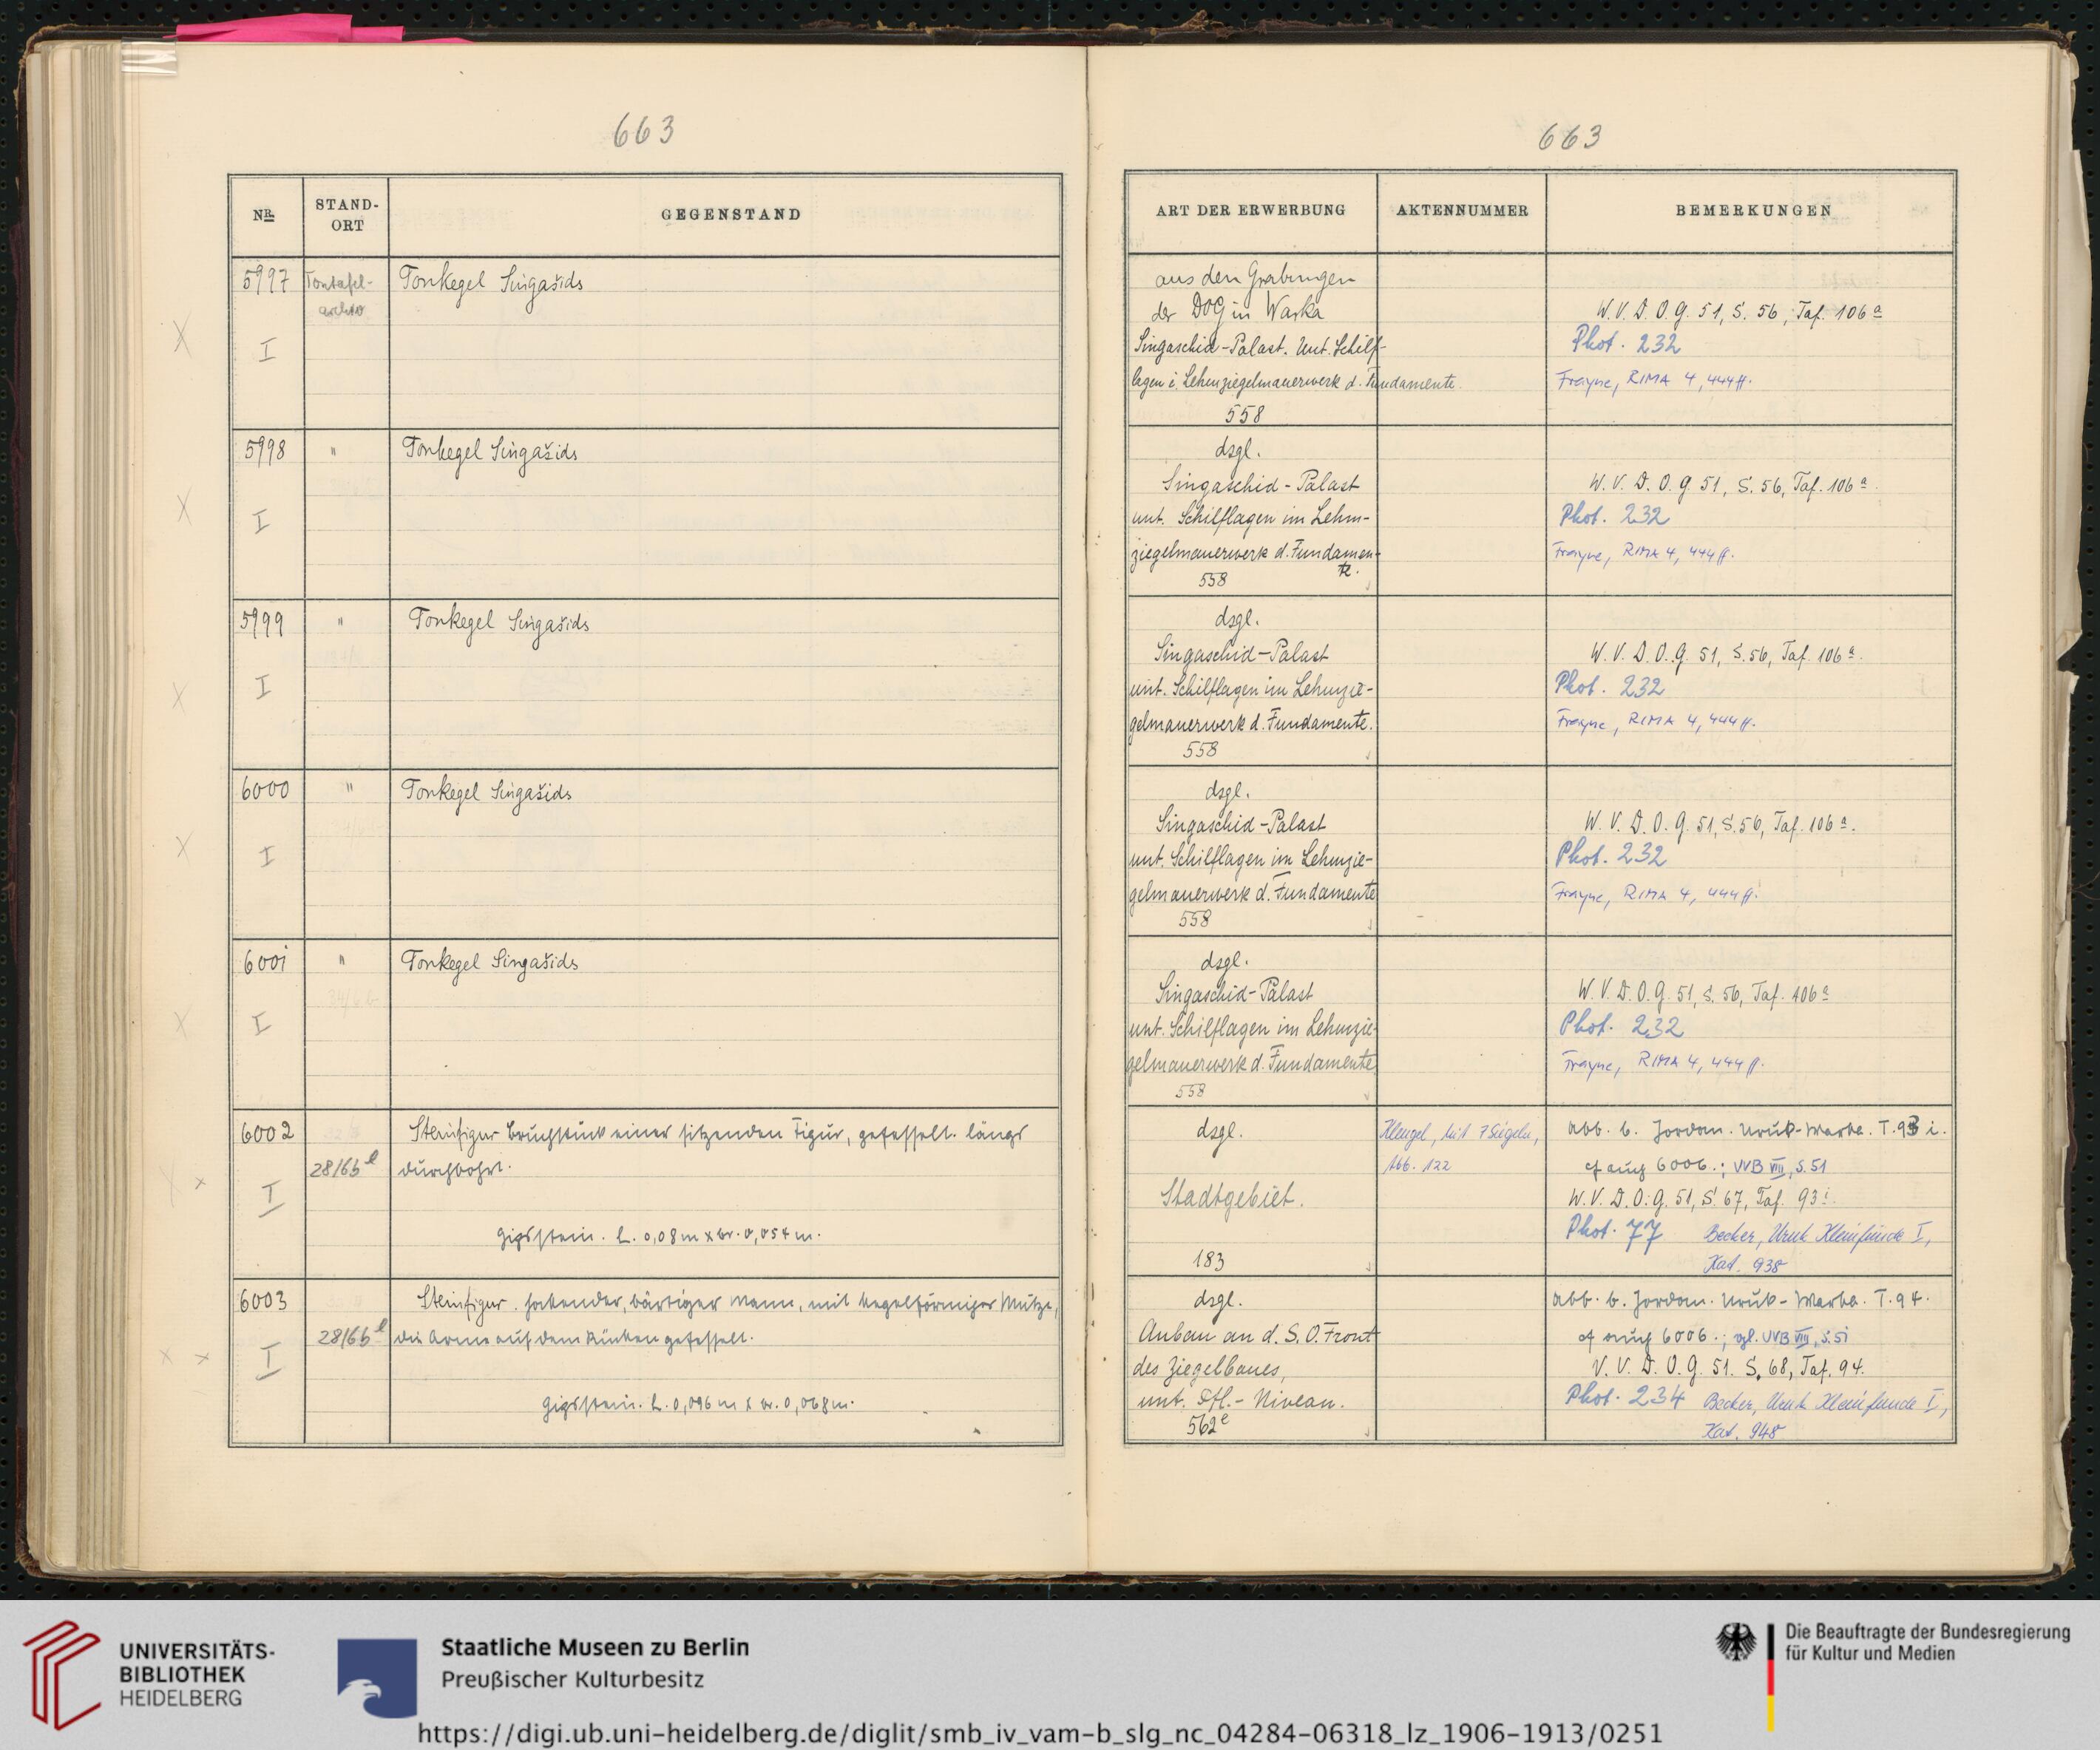 663
NR.
STAND-
ORT
GEGENSTAND
5997
Tontafel-
archiv
Tonkegel Singašids
I
5998
"
Tonkegel Singašids
I
5999
"
Tonkegel Singašids
I
6000
"
Tonkegel Singašids
I
6001
"
Tonkegel Singašids
I
6002
Steinfigur Bruchstück einer sitzenden Figur, gefesselt. längs
28/65 l
durchbohrt.
I
Gipsstein. L. 0,08 m x br. 0,054 m.
6003
Steinfigur. hockender, bärtiger Mann, mit kegelförmiger Mütze,
28/65 l
die Arme auf dem Rücken gefesselt.
I
Gipsstein. L. 0,096 m x br. 0,068 m.
663
ART DER ERWERBUNG
AKTENNUMMER
BEMERKUNGEN
aus den Grabungen
der DOG in Warka
W. V. D. O. G. 51, S. 56, Taf. 106 a
Singaschid-Palast. Unt. Schilf-
Phot. 232
lagen i. Lehmziegelmauerwerk d. Fundamente.
Frayne, RIMA 4, 444 ff.
558
dsgl.
Singaschid-Palast
W. V. D. O. G. 51, S. 56, Taf. 106 a.
unt. Schilflagen im Lehm-
Phot. 232
ziegelmauerwerk d. Fundamen-
te.
Frayne, RIMA 4, 444 ff.
558
dsgl.
Singaschid-Palast
W. V. D. O. G. 51, S. 56, Taf. 106 a.
unt. Schilflagen im Lehmzie-
Phot. 232
gelmauerwerk d. Fundamente.
Frayne, RIMA 4, 444 ff.
558
dsgl.
Singaschid-Palast
W. V. D. O. G. 51, S. 56, Taf. 106 a.
unt. Schilflagen im Lehmzie-
Phot. 232
gelmauerwerk d. Fundamente
Frayne, RIMA 4, 444 ff.
558
dsgl.
Singaschid-Palast
W. V. D. O. G. 51, S. 56, Taf. 106 a
unt. Schilflagen im Lehmzie-
Phot. 232
gelmauerwerk d. Fundamente.
Frayne, RIMA 4, 444 ff.
558
dsgl.
Klengel, mit 7 Siegeln,
Abb. 122
Abb. b. Jordan. Uruk-Warka. T. 93 i.
cf auch 6006.; UVB VIII, S. 51
Stadtgebiet.
W. V. D. O. G. 51, S. 67, Taf. 93 i.
Phot. 77 Becker, Uruk Kleinfunde I,
183
Kat. 938
dsgl.
Abb. b. Jordan. Uruk-Warka. T. 94.
Anbau an d. S. O. Front
cf auch 6006.; vgl. UVB VIII, S. 51
des Ziegelbaues,
V. V. D. O. G. 51. S. 68, Taf. 94.
unt. Niveau.
Phot. 234 Becker, Uruk Kleinfunde I,
562 e
Kat. 948
UNIVERSITÄTS-
BIBLIOTHEK
HEIDELBERG
Staatliche Museen zu Berlin
Preußischer Kulturbesitz
Die Beauftragte der Bundesregierung
für Kultur und Medien
https://digi.ub.uni-heidelberg.de/diglit/smb_iv_vam-b_slg_nc_04284-06318_lz_1906-1913/0251